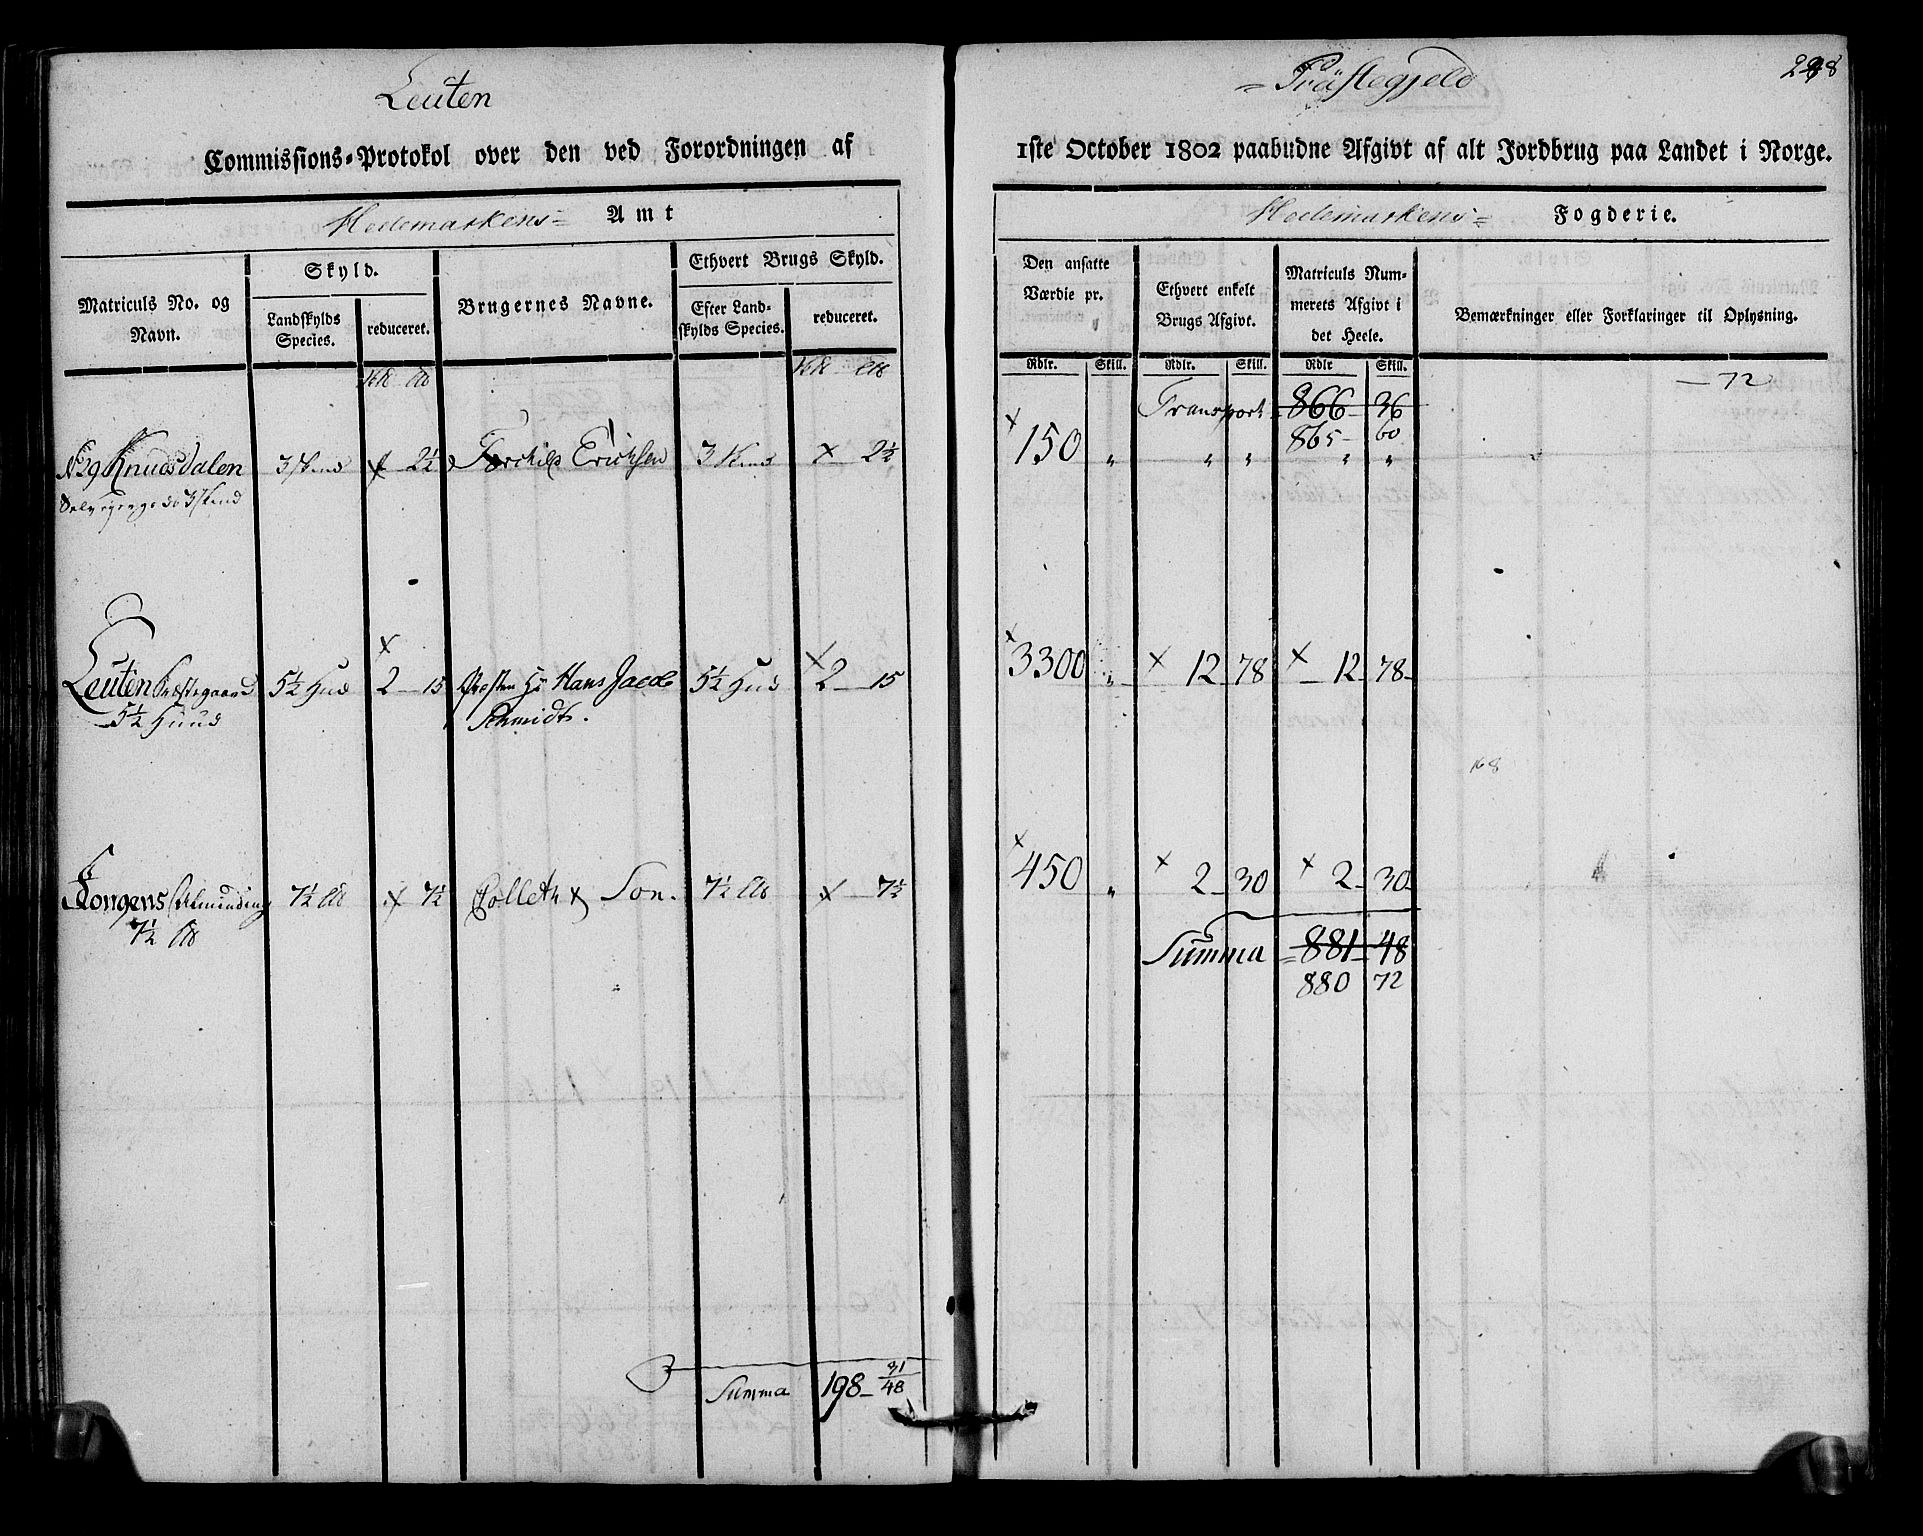 Leuten = Præstegjeld
298
Commissions-Protokol over den ved Forordningen af 1ste October 1802 paabudne Afgivt af alt Jordbrug paa Landet i Norge.
Hedemarkens= Amt
Hedemarkens= Fogderie.
Matriculs No. og Navn.
Skyld.
Landskylds Species.
reduceret.
Brugernes Navne.
Ethvert Brugs Skyld.
Efter Landskylds Species.
reduceret.
Den ansatte Værdie pr.
Ethvert enkelt Brugs Afgivt.
Matriculs Nummerets Afgivt i det Heele.
Bemærkninger eller Forklaringer til Oplysning.
Rdlr. Skill. Rdlr. Skill. Rdlr Skill.
— 72
Transport 866 - 36
865 - 60
No 29 Knudsdalen 3 Skind x 2½ Torchild Erichsen 3 Skind x 2½ x 150 " " " " "
Selveyergods 3 Skind
Leuten Præstegaard 5½ Hud x 2 - 15 Præsten Hr Hans Jacob 5½ Hud x 2 - 15 x 3300 " x 12 - 78 x - 12 - 78
5½ Huud Schmidt.
168
Kongens Alminding 7½ x 7½ Collett & Son. 7½ x 7½ x 450 " x 2 - 30 x 2 - 30
7½
Summa = 881 - 48
880 72
Summa 198 - 31/48